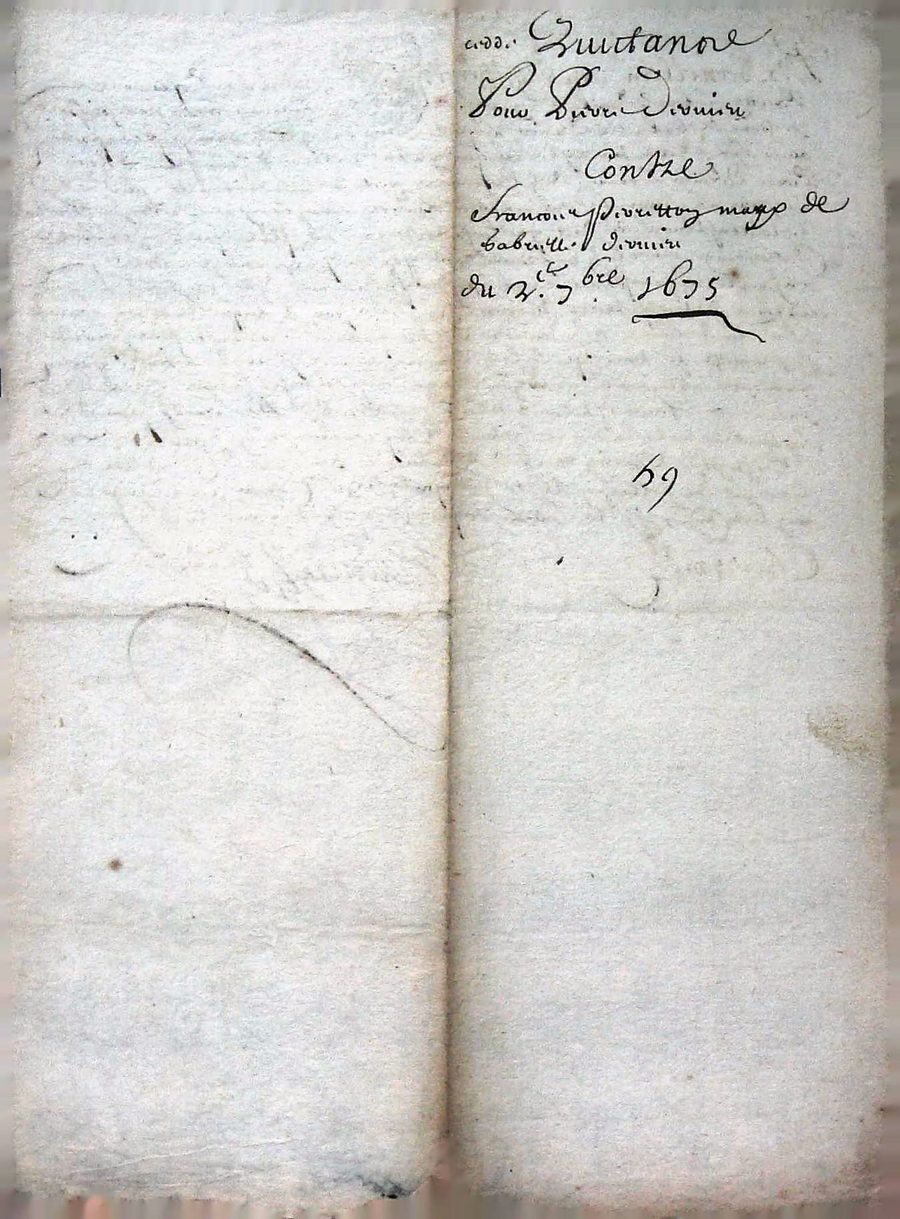 cedde Quictance
Pour Pierre Dernier
Contre
Francois Perretton mary de
Gabrielle dernier
du 2.e 7.bre 1675
59